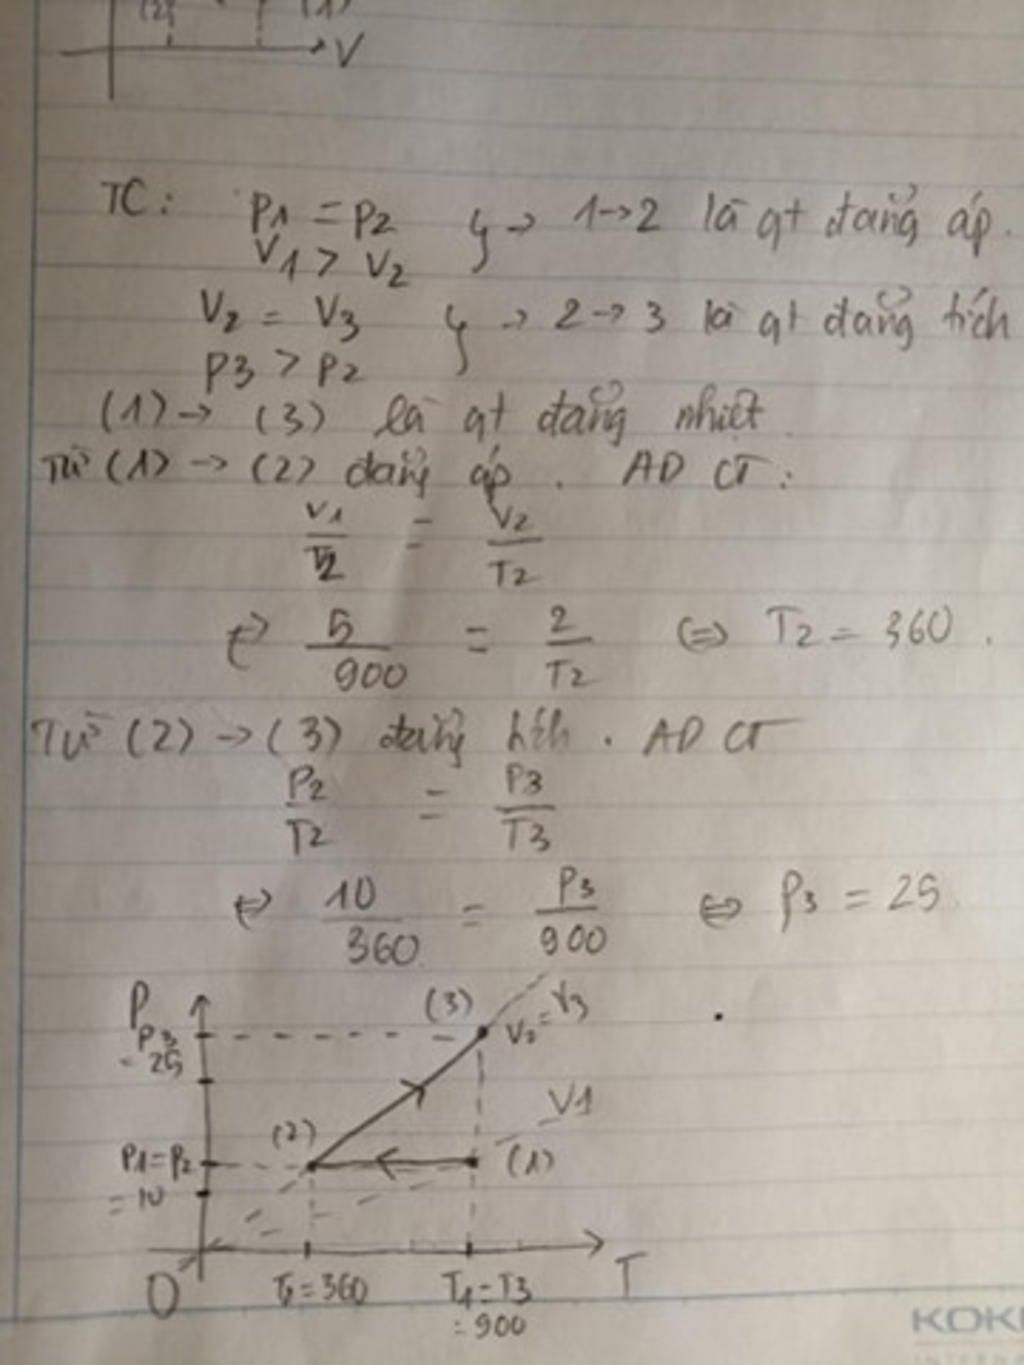 (2) (1)
V
TC: p1 = p2 } → 1→2 là qt đẳng áp.
V1 > V2
V2 = V3 } → 2→3 là qt đẳng tích
p3 > p2
(1) → (3) là qt đẳng nhiệt
Từ (1) → (2) đẳng áp. AD CT:
V1/T2 = V2/T2
⇔ 5/900 = 2/T2 ⇔ T2 = 360.
Từ (2) → (3) đẳng tích. AD CT
P2/T2 = P3/T3
⇔ 10/360 = P3/900 ⇔ P3 = 25.
P
P3 = 25
(3) V2 = V3
V1
(2)
P1 = P2 = 10
(1)
O
T2 = 360
T1 = T3 = 900
T
KOK
INTERNA